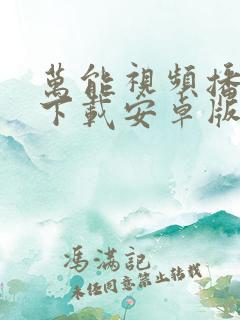 萬能視頻播
下載安卓版
馮滿記
未經同意禁止轉載